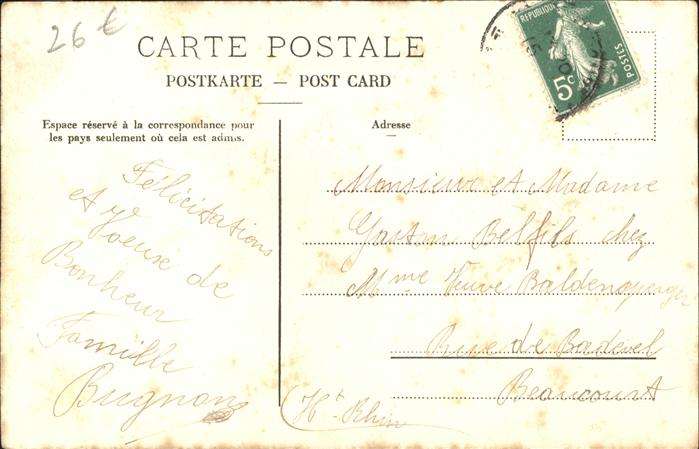 26 €
CARTE POSTALE
POSTKARTE — POST CARD
Espace réservé à la correspondance pour
les pays seulement où cela est admis.
Adresse
RÉPUBLIQUE
POSTES
5c
Félicitations
et Voeuse de
Bonheur
Famille
Bugnon
Monsieur et Madame
Gaston Belfils chez
Mme Veuve Baldensperger
Rue de Badevel
Beaucourt
(Ht Rhin